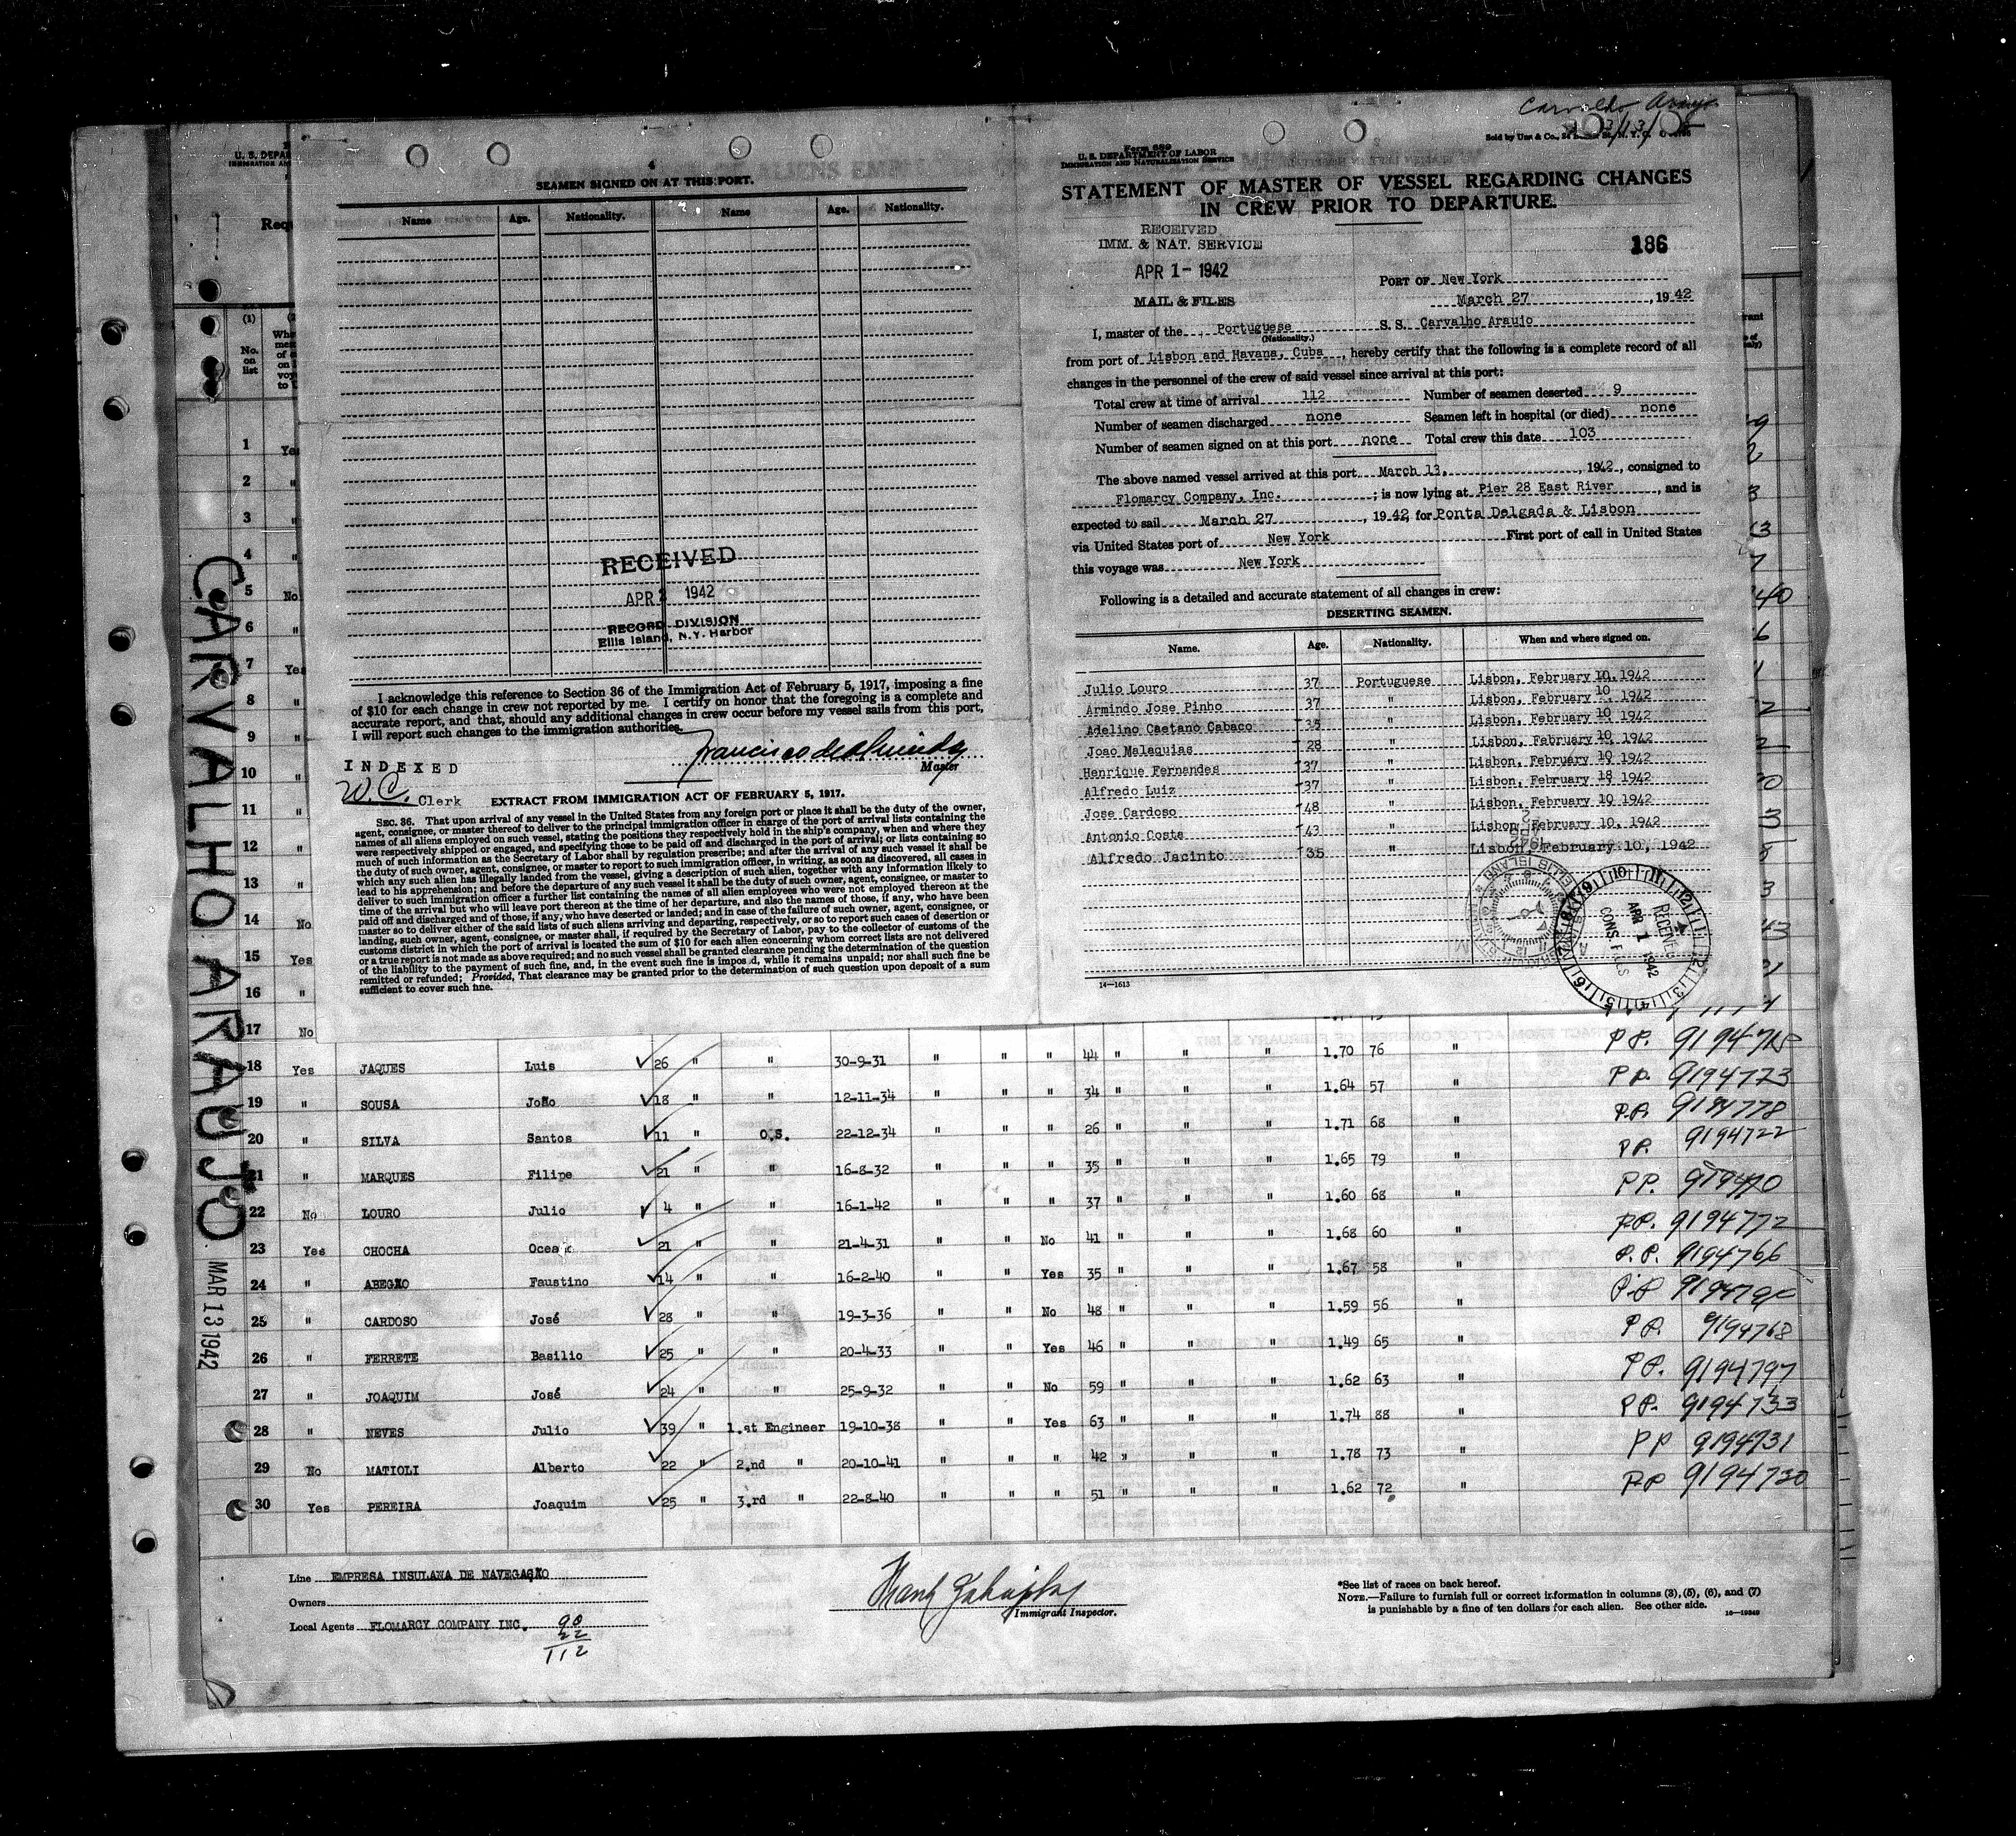 Carvalho Araujo
3/13/42
Sold by Unz & Co.,
U. S. DEPAR
IMMIGRATION AND
Requ
4
SEAMEN SIGNED ON AT THIS PORT.
Name Age. Nationality. Name Age. Nationality.
RECEIVED
APR 2 1942
RECORD DIVISION
Ellis Island, N.Y. Harbor
I acknowledge this reference to Section 36 of the Immigration Act of February 5, 1917, imposing a fine
of $10 for each change in crew not reported by me. I certify on honor that the foregoing is a complete and
accurate report, and that, should any additional changes in crew occur before my vessel sails from this port,
I will report such changes to the immigration authorities.
Francisco de Almeida
Master
INDEXED
W.C. Clerk
EXTRACT FROM IMMIGRATION ACT OF FEBRUARY 5, 1917.
SEC. 36. That upon arrival of any vessel in the United States from any foreign port or place it shall be the duty of the owner,
agent, consignee, or master thereof to deliver to the principal immigration officer in charge of the port of arrival lists containing the
names of all aliens employed on such vessel, stating the positions they respectively hold in the ship's company, when and where they
were respectively shipped or engaged, and specifying those to be paid off and discharged in the port of arrival; or lists containing so
much of such information as the Secretary of Labor shall by regulation prescribe; and after the arrival of any such vessel it shall be
the duty of such owner, agent, consignee, or master to report to such immigration officer, in writing, as soon as discovered, all cases in
which any such alien has illegally landed from the vessel, giving a description of such alien, together with any information likely to
lead to his apprehension; and before the departure of any such vessel it shall be the duty of such owner, agent, consignee, or master to
deliver to such immigration officer a further list containing the names of all alien employees who were not employed thereon at the
time of the arrival but who will leave port thereon at the time of her departure, and also the names of those, if any, who have been
paid off and discharged and of those, if any, who have deserted or landed; and in case of the failure of such owner, agent, consignee, or
master so to deliver either of the said lists of such aliens arriving and departing, respectively, or so to report such cases of desertion or
landing, such owner, agent, consignee, or master shall, if required by the Secretary of Labor, pay to the collector of customs of the
customs district in which the port of arrival is located the sum of $10 for each alien concerning whom correct lists are not delivered
or a true report is not made as above required; and no such vessel shall be granted clearance pending the determination of the question
of the liability to the payment of such fine, and, in the event such fine is imposed, while it remains unpaid; nor shall such fine be
remitted or refunded; Provided, That clearance may be granted prior to the determination of such question upon deposit of a sum
sufficient to cover such fine.
Form 689
U. S. DEPARTMENT OF LABOR
IMMIGRATION AND NATURALIZATION SERVICE
STATEMENT OF MASTER OF VESSEL REGARDING CHANGES
IN CREW PRIOR TO DEPARTURE.
RECEIVED
IMM. & NAT. SERVICE
APR 1 - 1942
MAIL & FILES
186
PORT OF New York
March 27, 1942
I, master of the Portuguese S.S. Carvalho Araujo
(Nationality.)
from port of Lisbon and Havana, Cuba, hereby certify that the following is a complete record of all
changes in the personnel of the crew of said vessel since arrival at this port:
Total crew at time of arrival 112 Number of seamen deserted 9
Number of seamen discharged none Seamen left in hospital (or died) none
Number of seamen signed on at this port none Total crew this date 103
The above named vessel arrived at this port March 13, 1942, consigned to
Flomarcy Company, Inc. ; is now lying at Pier 28 East River, and is
expected to sail March 27, 1942, for Ponta Delgada & Lisbon
via United States port of New York First port of call in United States
this voyage was New York
Following is a detailed and accurate statement of all changes in crew:
DESERTING SEAMEN.
Name. Age. Nationality. When and where signed on.
Julio Louro 37 Portuguese Lisbon, February 10, 1942
Armindo Jose Pinho 37 " Lisbon, February 10, 1942
Adelino Caetano Cabaco 35 " Lisbon, February 10 1942
Joao Malaquias 28 " Lisbon, February 10 1942
Henrique Fernandes 37 " Lisbon, February 10 1942
Alfredo Luiz 37 " Lisbon, February 18 1942
Jose Cardoso 48 " Lisbon, February 10 1942
Antonio Costa 43 " Lisbon, February 10, 1942
Alfredo Jacinto 35 " Lisbon, February 10, 1942
RECEIVED
APR 1 1942
CONS. FILES
14—1613
CARVALHO ARAUJO
MAR 13 1942
(1)
No. on list
1 Yes
2 "
3 "
4 "
5 No
6 "
7 Yes
8 "
9 "
10 "
11 "
12 "
13 "
14 No
15 Yes
16 "
17 No
18 Yes JAQUES Luis 26 " " 30-9-31 " " " 44 " " " 1.70 76 " P.P.
19 " SOUSA João 18 " " 12-11-34 " " " 34 " " " 1.64 57 " P.P. 9194773
20 " SILVA Santos 11 " O.S. 22-12-34 " " " 26 " " " 1.71 68 " P.P. 9194778
21 " MARQUES Filipe 21 " " 16-8-32 " " " 35 " " " 1.65 79 " P.P. 9194722
22 No LOURO Julio 4 " " 16-1-42 " " " 37 " " " 1.60 68 " P.P.
23 Yes CHOCHA Ocean 21 " " 21-4-31 " " No 41 " " " 1.68 60 " P.P. 9194772
24 " ABEGÃO Faustino 14 " " 16-2-40 " " Yes 35 " " " 1.67 58 " P.P. 9194766
25 " CARDOSO José 28 " " 19-3-36 " " No 48 " " " 1.59 56 " P.P.
26 " FERRETE Basilio 25 " " 20-4-33 " " Yes 46 " " " 1.49 65 " P.P. 9194768
27 " JOAQUIM José 24 " " 25-9-32 " " No 59 " " " 1.62 63 " P.P. 9194797
28 " NEVES Julio 39 " 1.st Engineer 19-10-38 " " Yes 63 " " " 1.74 88 " P.P. 9194733
29 No MATIOLI Alberto 22 " 2.nd " 20-10-41 " " " 42 " " " 1.78 73 " P.P. 9194731
30 Yes PEREIRA Joaquim 25 " 3.rd " 22-8-40 " " " 51 " " " 1.62 72 " P.P. 9194730
Line EMPRESA INSULANA DE NAVEGAÇÃO
Owners
Local Agents FLOMARCY COMPANY INC.
90
22
112
Immigrant Inspector.
*See list of races on back hereof.
NOTE.—Failure to furnish full or correct information in columns (3), (5), (6), and (7)
is punishable by a fine of ten dollars for each alien. See other side.
16—19349